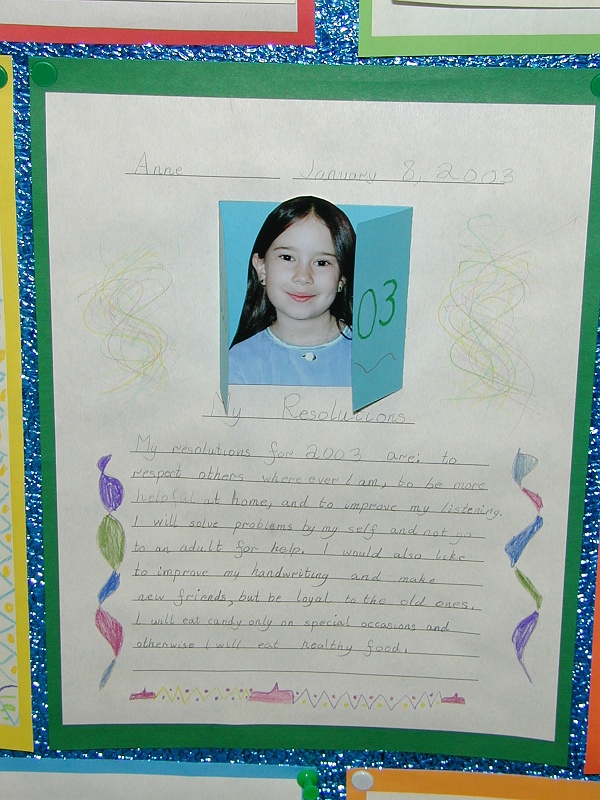 Anne January 8, 2003
03
My Resolutions
My resolutions for 2003 are: to
respect others where ever I am, to be more
helpful at home, and to improve my listening.
I will solve problems by my self and not go
to an adult for help. I would also like
to improve my handwriting and make
new friends, but be loyal to the old ones.
I will eat candy only on special occasions and
otherwise I will eat healthy food.